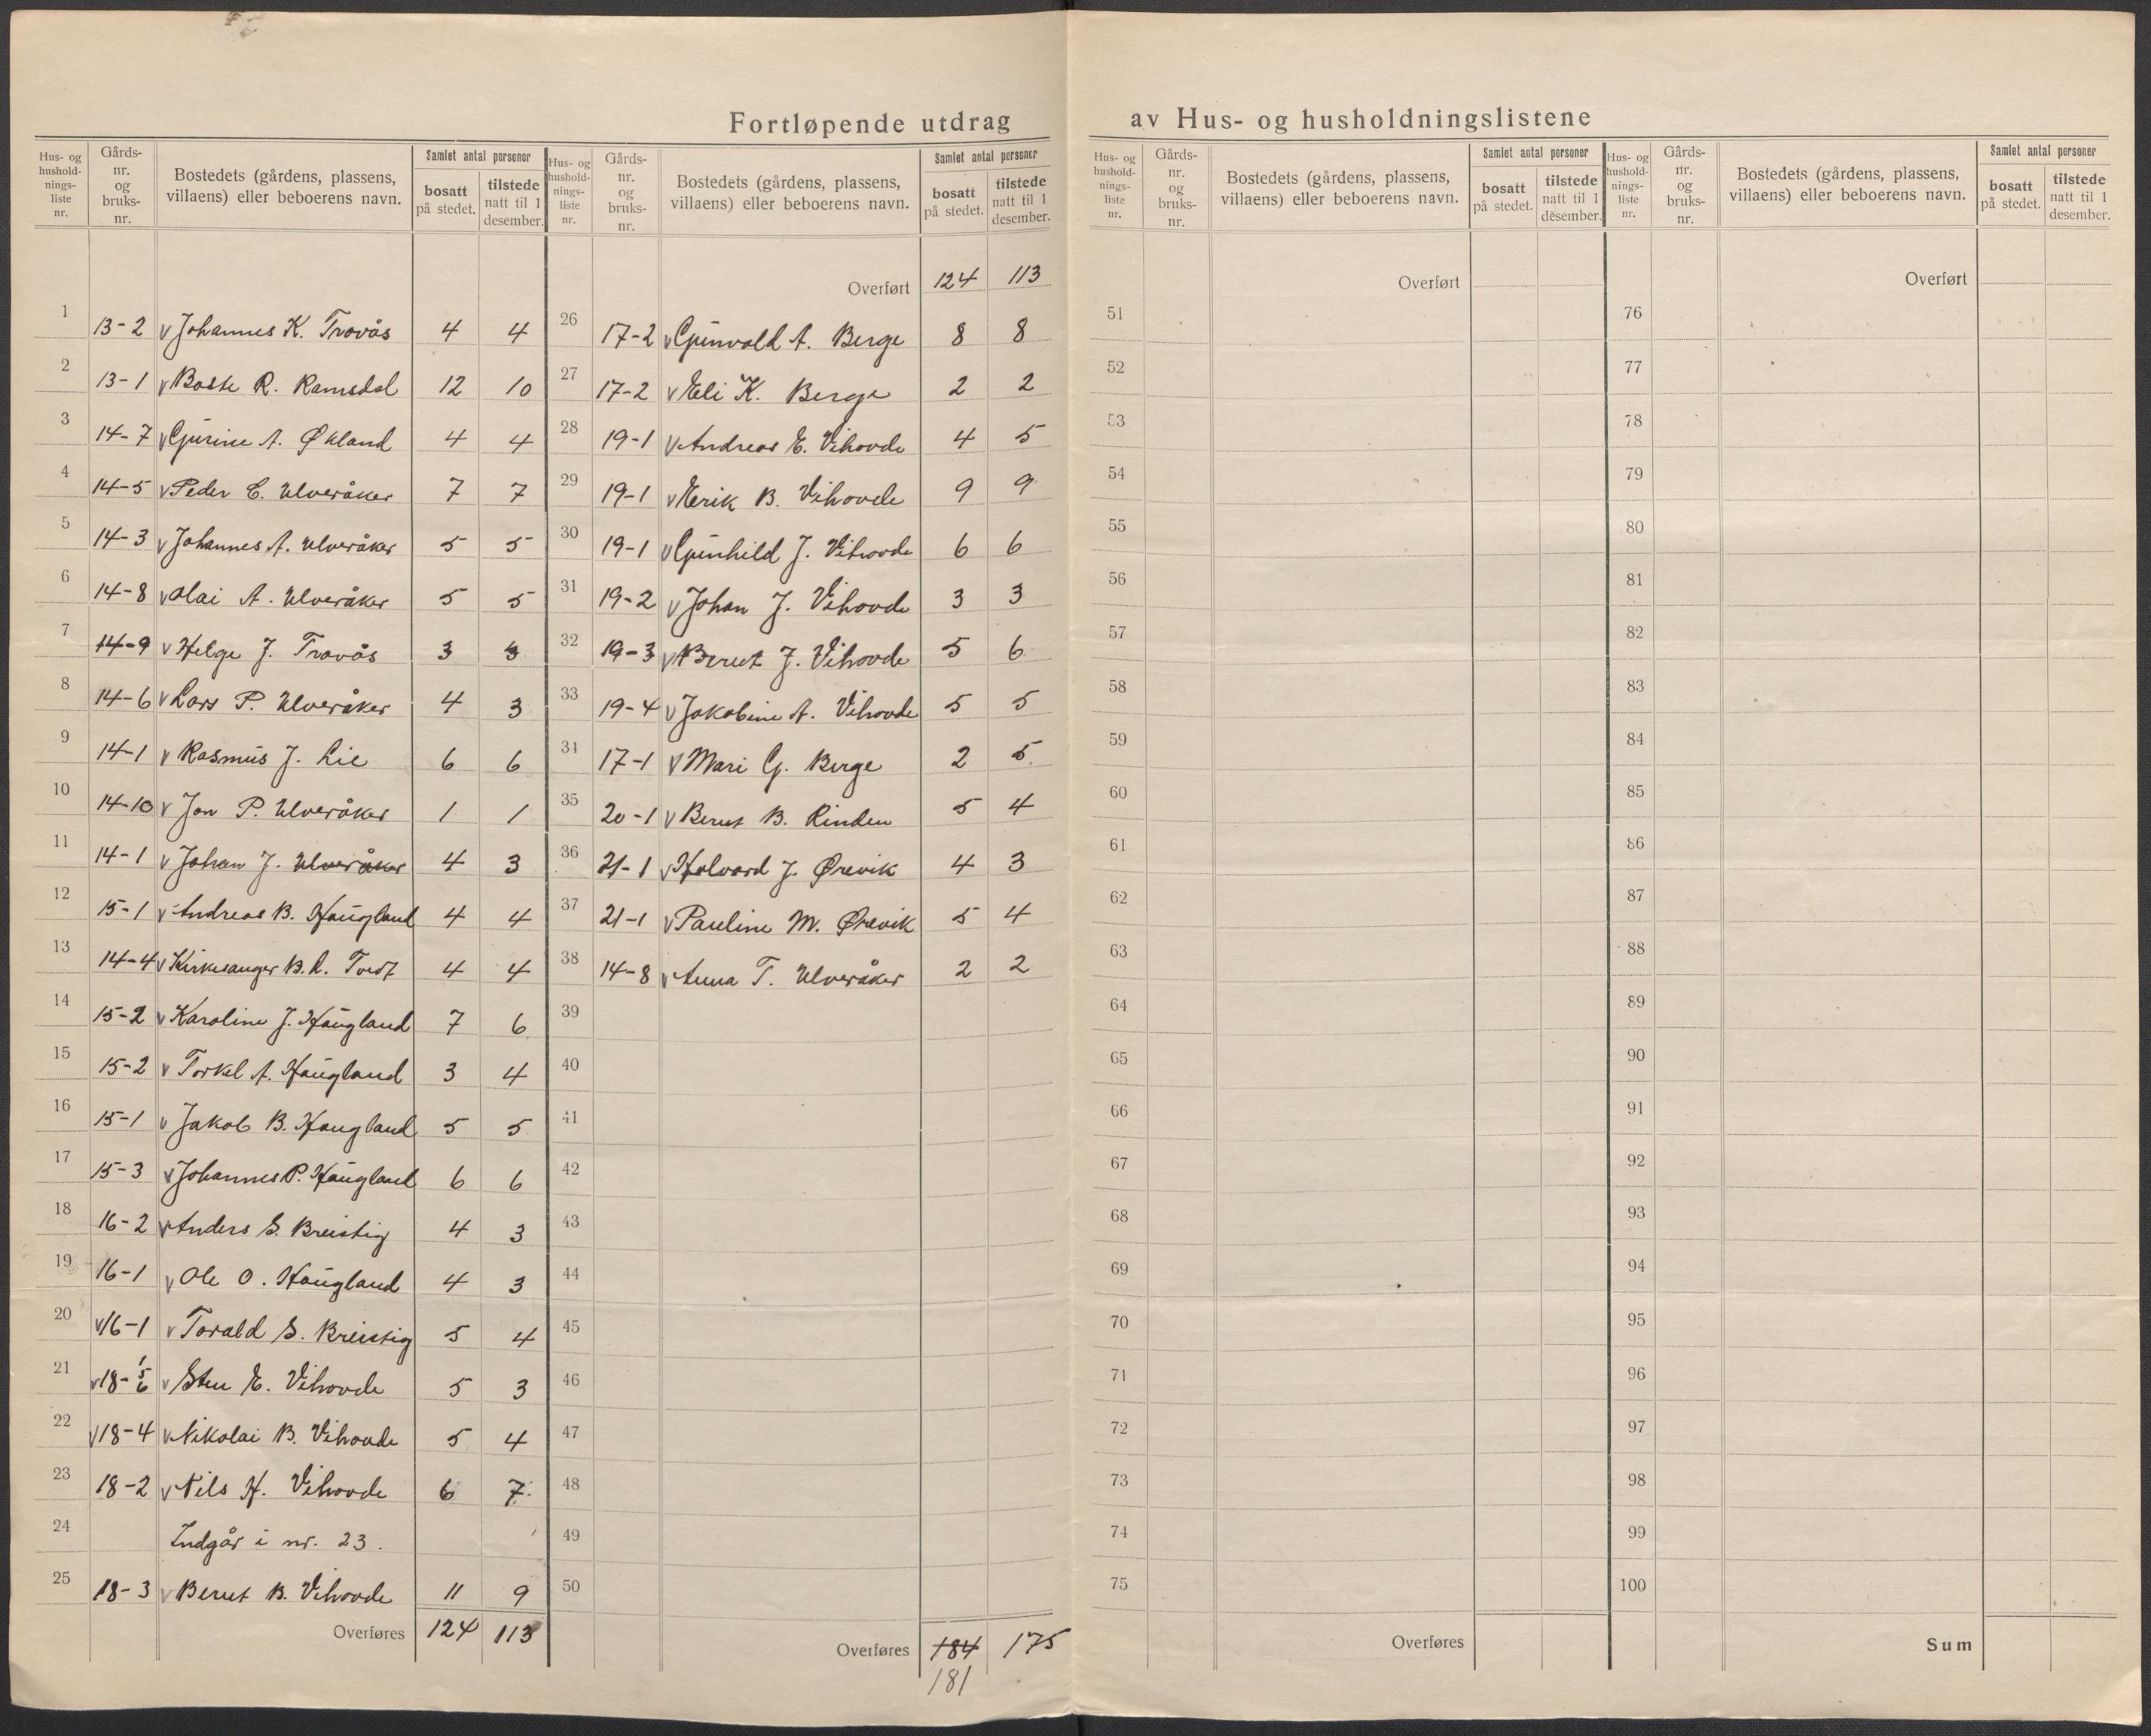 Fortløpende utdrag av Hus- og husholdningslistene
Hus- og hushold-nings-liste nr. | Gårds-nr. og bruks-nr. | Bostedets (gårdens, plassens, villaens) eller beboerens navn. | Samlet antal personer | bosatt på stedet. | tilstede natt til 1 desember.
1 13-2 v Johannes K. Trovås 4 4
2 13-1 v Baste R. Ramsdal 12 10
3 14-7 v Gurine A. Økland 4 4
4 14-5 v Peder C. Ulveråker 7 7
5 14-3 v Johannes A. Ulveråker 5 5
6 14-8 v Olai A. Ulveråker 5 5
7 14-9 v Helge J. Trovås 3 3
8 14-6 v Lars P. Ulveråker 4 3
9 14-1 v Rasmus J. Lie 6 6
10 14-10 v Jon P. Ulveråker 1 1
11 14-1 v Johan J. Ulveråker 4 3
12 15-1 v Andreas B. Haugland 4 4
13 14-4 v Kirkesanger B. L. Tvedt 4 4
14 15-2 v Karoline J. Haugland 7 6
15 15-2 v Torkel A. Haugland 3 4
16 15-1 v Jakob B. Haugland 5 5
17 15-3 v Johannes P. Haugland 6 6
18 16-2 v Anders S. Breistig 4 3
19 16-1 v Ole O. Haugland 4 3
20 v 16-1 v Torald S. Breistig 5 4
21 v 18-1 5 6 v Sten E. Vihovde 5 3
22 v 18-4 v Nikolai B. Vihovde 5 4
23 18-2 v Nils H. Vihovde 6 7
24 Indgår i nr. 23.
25 18-3 v Bernt B. Vihovde 11 9
Overføres 124 113
Hus- og hushold-nings-liste nr. | Gårds-nr. og bruks-nr. | Bostedets (gårdens, plassens, villaens) eller beboerens navn. | Samlet antal personer | bosatt på stedet. | tilstede natt til 1 desember.
Overført 124 113
26 17-2 v Gunvald A. Berge 8 8
27 17-2 v Eli K. Berge 2 2
28 19-1 v Andreas E. Vihovde 4 5
29 19-1 v Erik B. Vihovde 9 9
30 19-1 v Gunhild J. Vihovde 6 6
31 19-2 v Johan J. Vihovde 3 3
32 19-3 v Bernt J. Vihovde 5 6
33 19-4 v Jakobine A. Vihovde 5 5
34 17-1 v Mari G. Berge 2 5
35 20-1 v Bernt B. Rinden 5 4
36 21-1 v Halvard J. Ørevik 4 3
37 21-1 v Pauline M. Ørevik 5 4
38 14-8 v Anna T. Ulveråker 2 2
39
40
41
42
43
44
45
46
47
48
49
50
Overføres 184 175
181
Hus- og hushold-nings-liste nr. | Gårds-nr. og bruks-nr. | Bostedets (gårdens, plassens, villaens) eller beboerens navn. | Samlet antal personer | bosatt på stedet. | tilstede natt til 1 desember.
Overført
51
52
53
54
55
56
57
58
59
60
61
62
63
64
65
66
67
68
69
70
71
72
73
74
75
Overføres
Hus- og hushold-nings-liste nr. | Gårds-nr. og bruks-nr. | Bostedets (gårdens, plassens, villaens) eller beboerens navn. | Samlet antal personer | bosatt på stedet. | tilstede natt til 1 desember.
Overført
76
77
78
79
80
81
82
83
84
85
86
87
88
89
90
91
92
93
94
95
96
97
98
99
100
Sum